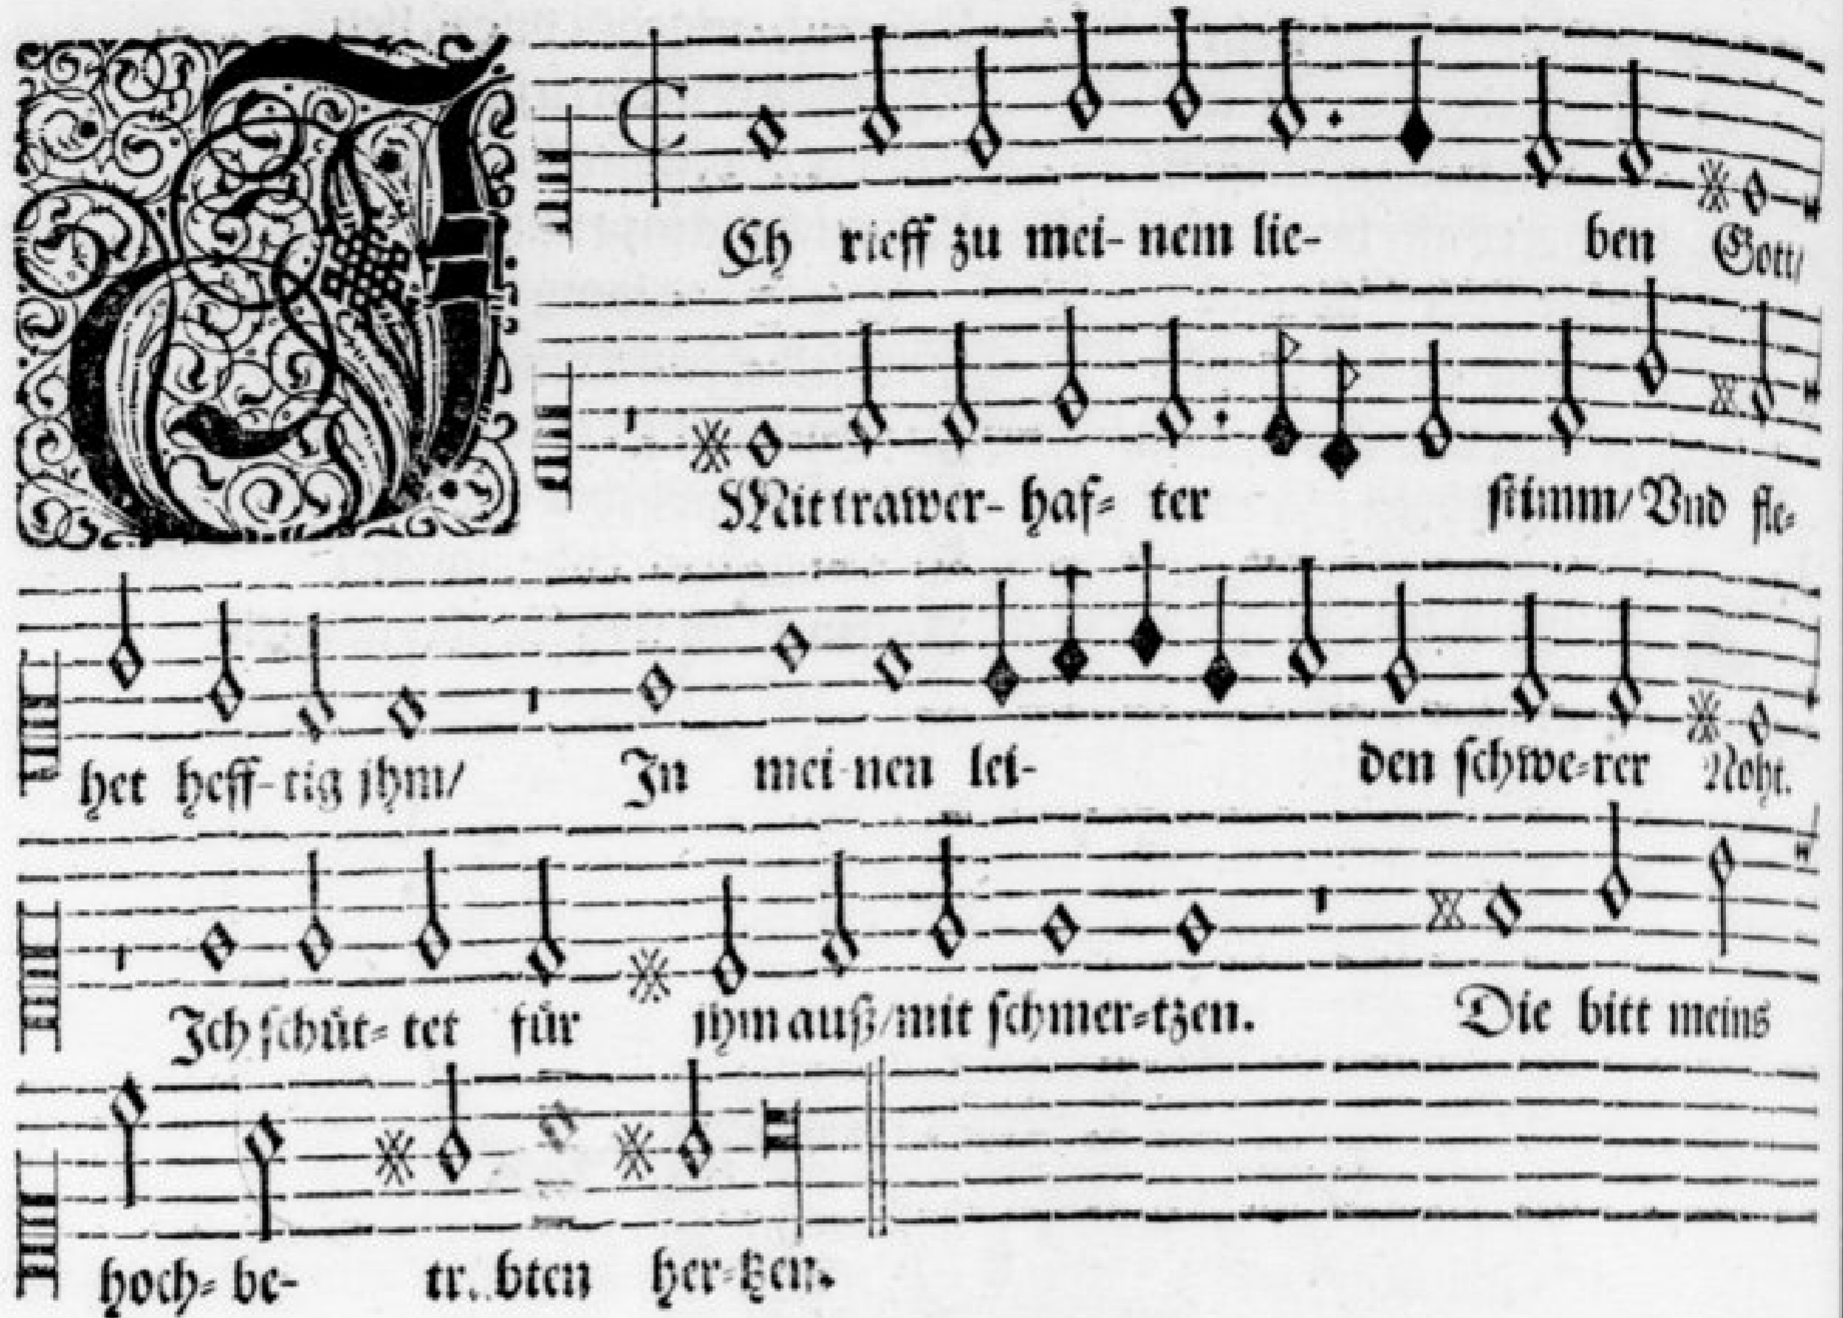 ICh rieff zu mei- nem lie- ben Gott/
Mit trawer- haf- ter stimm/ Vnd fle-
het heff-tig jhm/ In mei-nen lei- den schwe-rer Noht.
Ich schüt- tet für jhm auß/mit schmer-tzen. Die bitt meins
hoch- be- her-tzen.